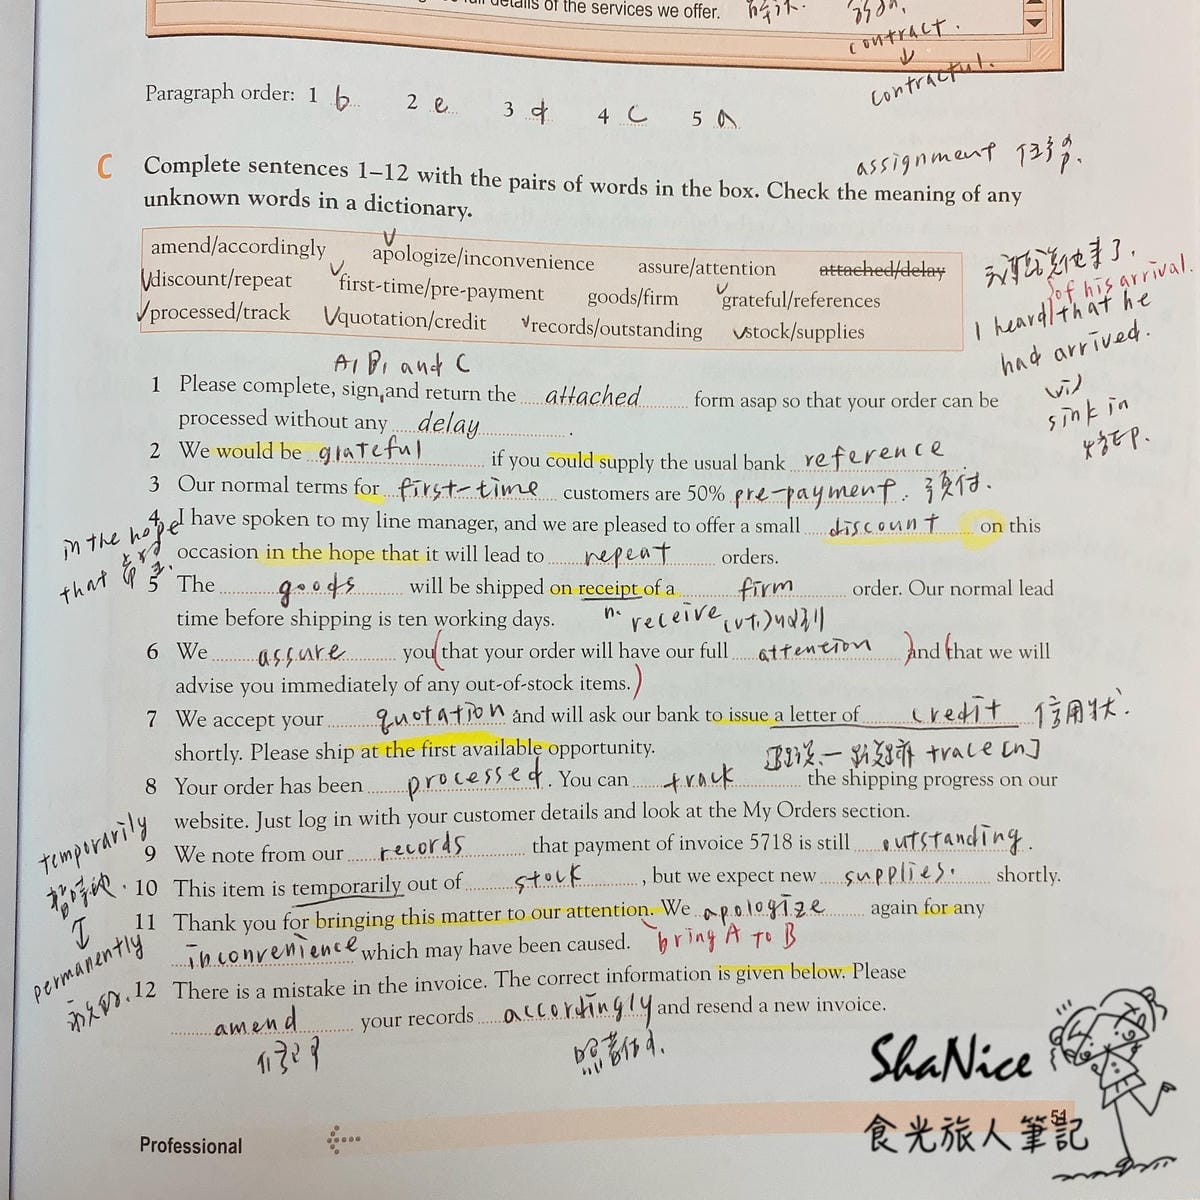 details of the services we offer.
contract.
↓
contractul.
Paragraph order: 1 b 2 e 3 d 4 c 5 a
assignment
C Complete sentences 1–12 with the pairs of words in the box. Check the meaning of any
unknown words in a dictionary.
amend/accordingly apologize/inconvenience assure/attention attached/delay
discount/repeat first-time/pre-payment goods/firm grateful/references
processed/track quotation/credit records/outstanding stock/supplies
of his arrival.
I heard that he
had arrived.
(vi)
sink in
A, B, and C
1 Please complete, sign, and return the attached form asap so that your order can be
processed without any delay.
2 We would be grateful if you could supply the usual bank reference
3 Our normal terms for first-time customers are 50% pre-payment. 預付.
4 I have spoken to my line manager, and we are pleased to offer a small discount on this
occasion in the hope that it will lead to repeat orders.
in the hope
that
5 The goods will be shipped on receipt of a firm order. Our normal lead
time before shipping is ten working days. n. receive (vt.) 收到
6 We assure you (that your order will have our full attention) and (that we will
advise you immediately of any out-of-stock items.)
7 We accept your quotation and will ask our bank to issue a letter of credit 信用狀.
shortly. Please ship at the first available opportunity.
trace [n]
8 Your order has been processed. You can track the shipping progress on our
website. Just log in with your customer details and look at the My Orders section.
9 We note from our records that payment of invoice 5718 is still outstanding.
temporarily
暫時地.
permanently
10 This item is temporarily out of stock, but we expect new supplies. shortly.
11 Thank you for bringing this matter to our attention. We apologize again for any
inconvenience which may have been caused. bring A to B
12 There is a mistake in the invoice. The correct information is given below. Please
amend your records accordingly and resend a new invoice.
ShaNice
食光旅人筆記
51
Professional